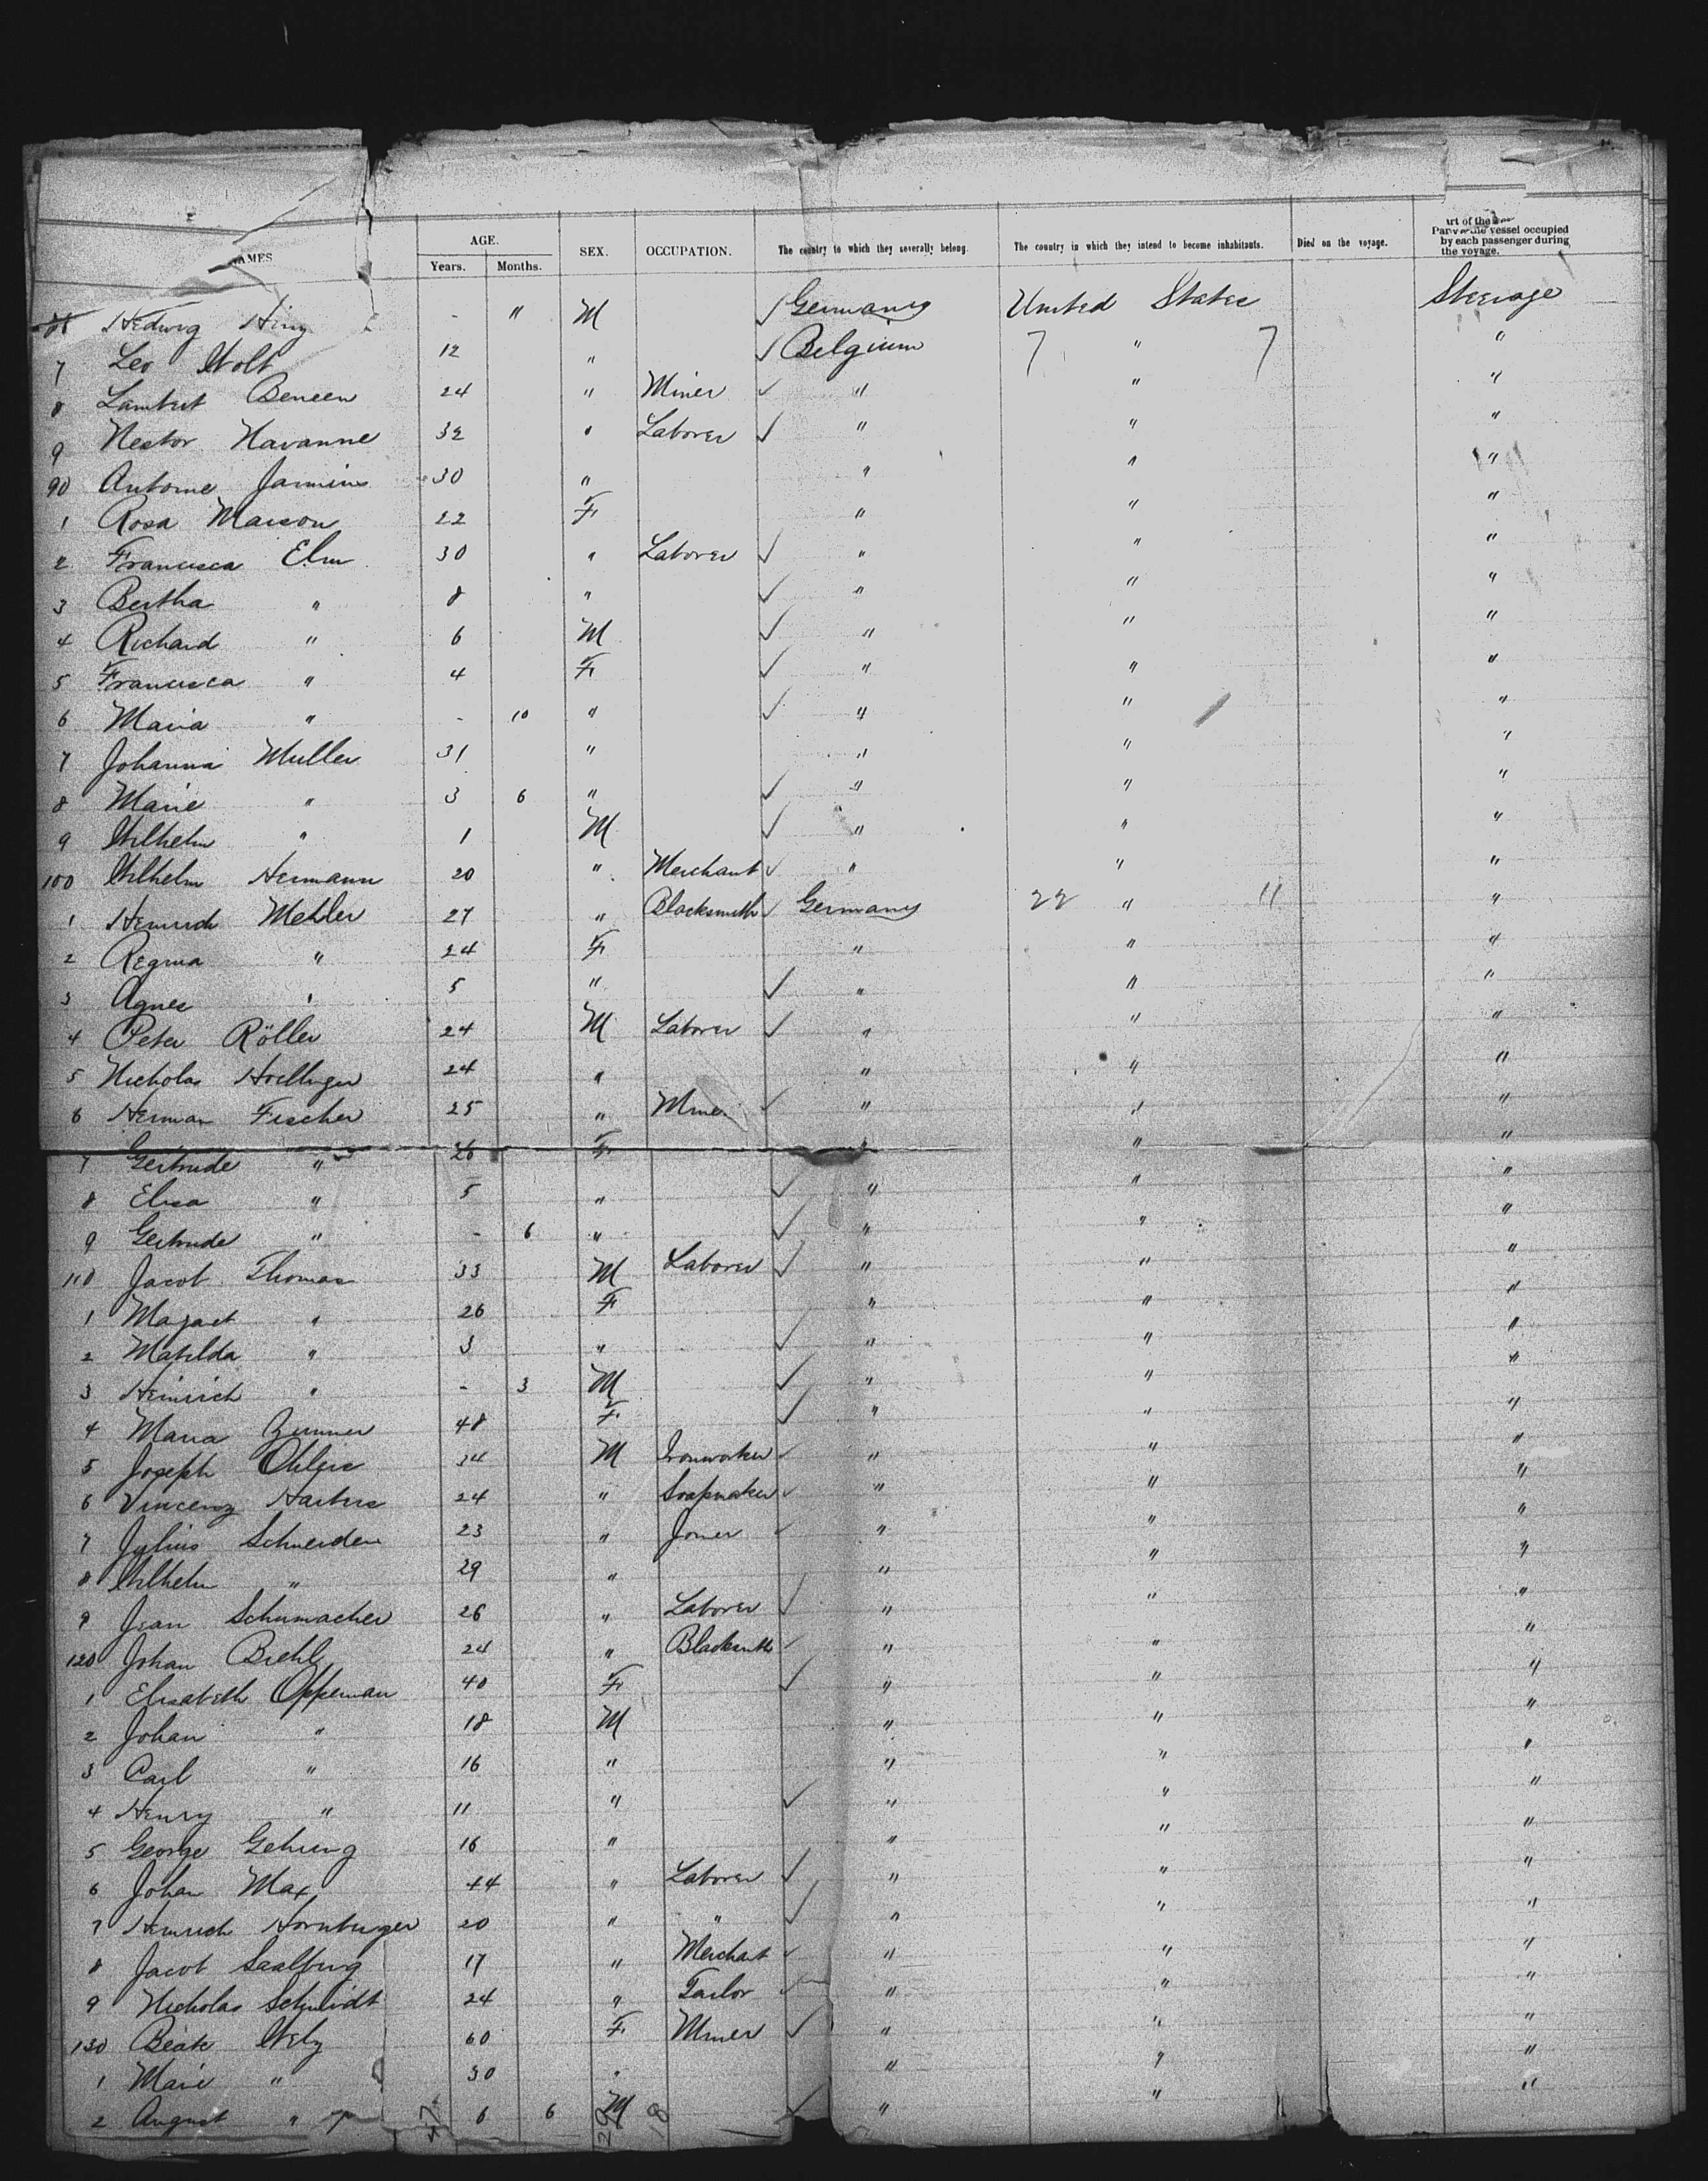 NAMES AGE. Years. Months. SEX. OCCUPATION. The country to which they severally belong. The country in which they intend to become inhabitants. Died on the voyage. Part of the vessel occupied by each passenger during the voyage.
Hedwig - " M Germany United States Steerage
7 Leo Wolt 12 " Belgium 7 " 7 "
8 Lambert Beneen 24 " Miner " " "
9 Nestor Havanne 32 " Laborer " " "
90 Antoine Jamins 30 " " " "
1 Rosa Maison 22 F " " "
2 Francisca Elm 30 " Laborer " " "
3 Bertha " 8 " " " "
4 Richard " 6 M " " "
5 Francisca " 4 F " " "
6 Maria " - 10 " " " "
7 Johanna Muller 31 " " " "
8 Marie " 3 6 " " " "
9 Wilhelm " 1 M " " "
100 Wilhelm Hermann 20 " Merchant " " "
1 Heinrich Mehler 27 " Blacksmith Germany 22 " 11 "
2 Regina " 24 F " " "
3 Agnes " 5 " " " "
4 Peter Röller 24 M Laborer " " "
5 Nicholas 24 " " " "
6 Herman Fischer 25 " Miner " " "
7 Gertrude " 26 F " " "
8 Elisa " 5 " " " "
9 Gertrude " - 6 " " " "
110 Jacob Thomas 33 M Laborer " " "
1 Magaet " 26 F " " "
2 Matilda " 3 " " " "
3 Heinrich " - 3 M " " "
4 Maria Zimmer 48 F " " "
5 Joseph Ohlgis 34 M Ironworker " " "
6 Vincenz 24 " Soapmaker " " "
7 Julius Schneider 23 " Joiner " " "
8 Wilhelm " 29 " " " "
9 Jean Schumacher 26 " Laborer " " "
120 Johan Biehl 24 " Blacksmith " " "
1 Elisabeth Oppeman 40 F " " "
2 Johan " 18 M " " "
3 Carl " 16 " " " "
4 Henry " 11 " " " "
5 George Gehring 16 " " " "
6 Johan Max 44 " Laborer " " "
7 Heinrich Hornburger 20 " " " " "
8 Jacob Saalburg 17 " Merchat " " "
9 Nicholas Schmidt 24 " Tailor " " "
130 Beate Welz 60 F Miner " " "
1 Marie " 30 " " " "
2 August " 6 6 M " " "
47 29 18